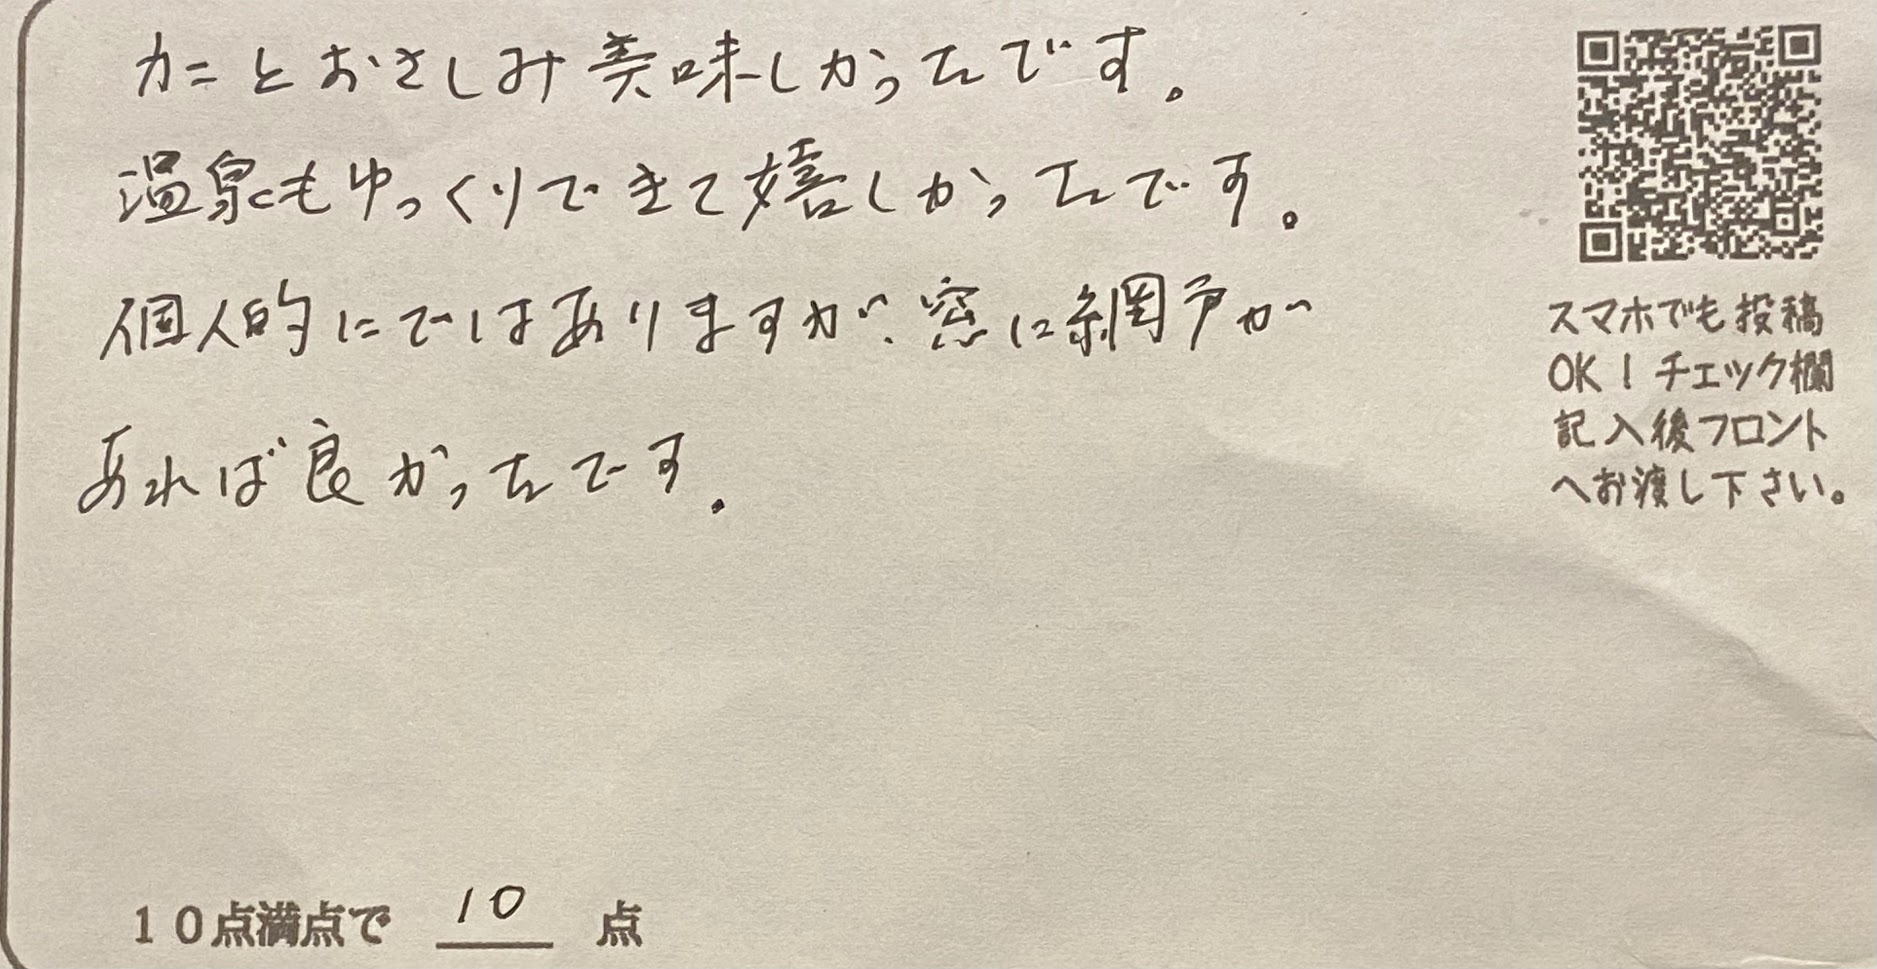 カニとおさしみ美味しかったです。
温泉もゆっくりできて嬉しかったです。
個人的にではありますが、窓に網戸が
あれば良かったです。
スマホでも投稿
OK！チェック欄
記入後フロント
へお渡し下さい。
10点満点で 10 点